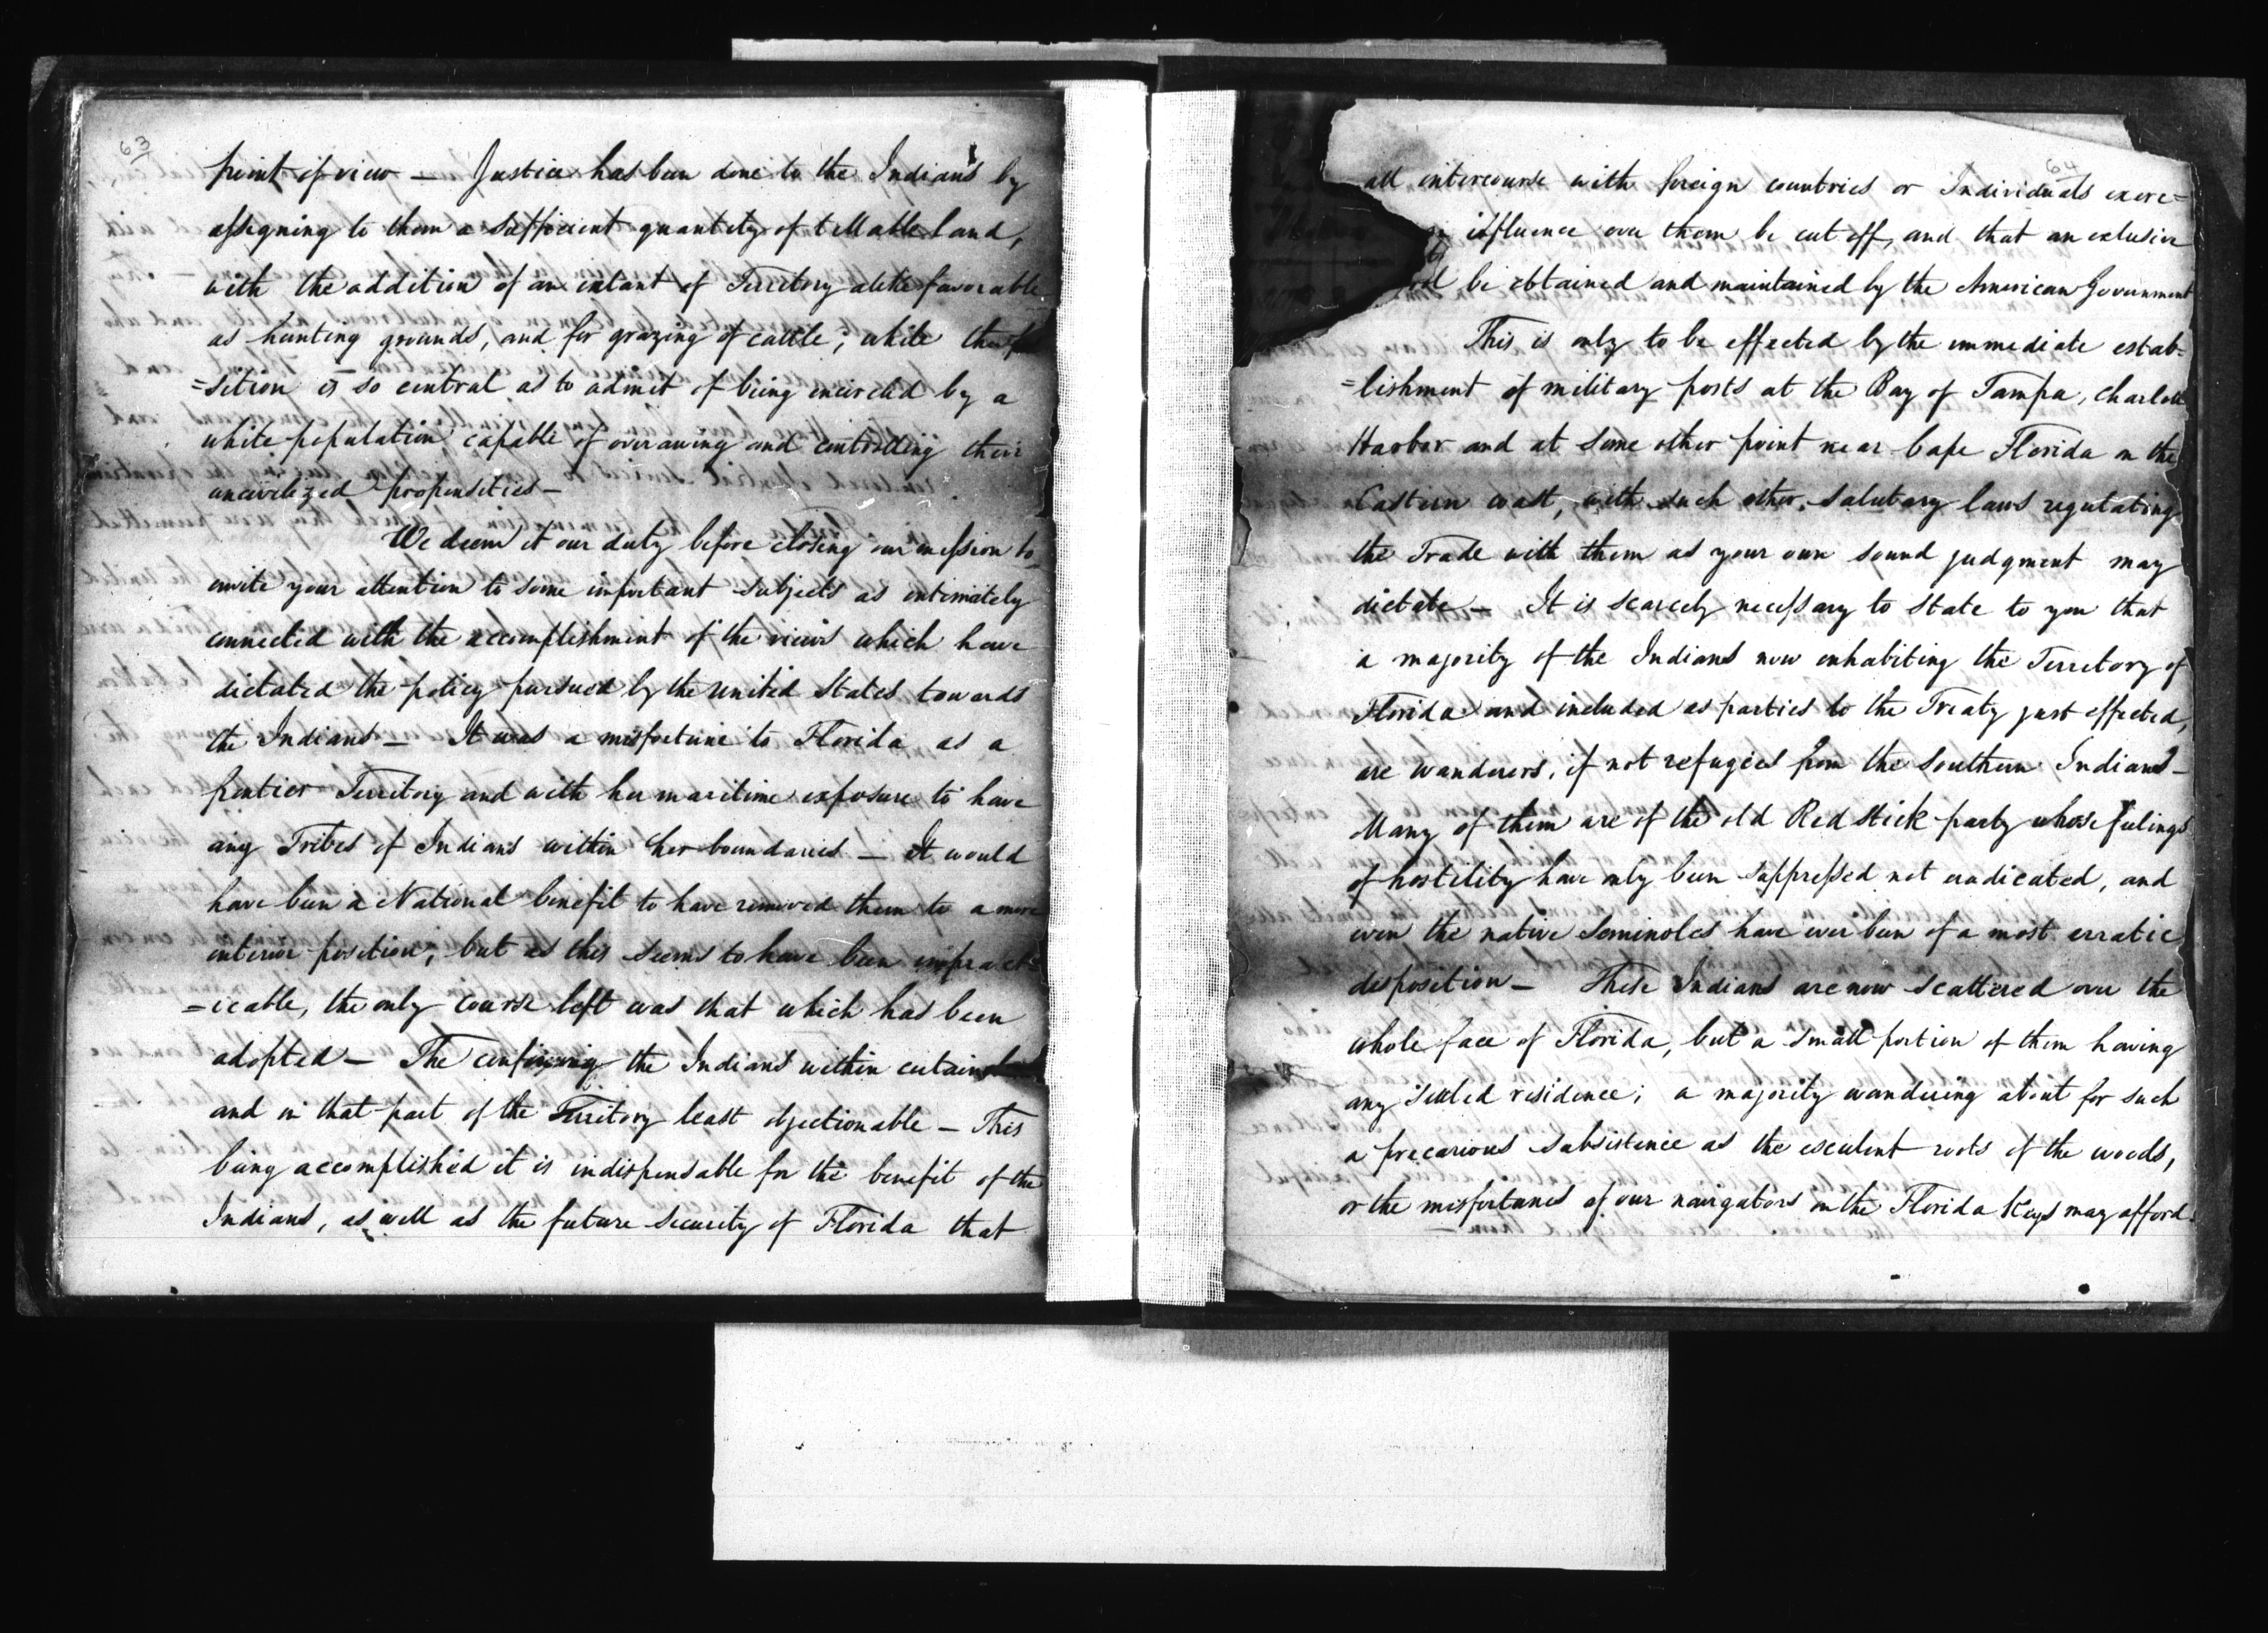 63
point of view — Justice has been done to the Indians by
assigning to them a sufficient quantity of tillable land,
with the addition of an extent of Territory alike favorable
as hunting grounds, and for grazing of cattle; while
=sition is so central as to admit of being encircled by a
white population capable of overawing and controlling their
uncivilized propensities —
We deem it our duty before closing our mission to
invite your attention to some important subjects as intimately
connected with the accomplishment of the views which have
dictated the policy pursued by the United States towards
the Indians — It was a misfortune to Florida as a
frontier Territory and with her maritime exposure to have
any Tribes of Indians within her boundaries — It would
have been a National benefit to have removed them to a more
interior position; but as this seems to have been impract=
=icable, the only course left was that which has been
adopted — The confining the Indians within certain
and in that part of the Territory least objectionable — This
being accomplished it is indispensable for the benefit of the
Indians, as well as the future security of Florida that
64
all intercourse with foreign countries or Individuals exerc=
influence over them be cut off, and that an exlusive
be obtained and maintained by the American Government
This is only to be effected by the immediate estab=
=lishment of military posts at the Bay of Tampa, Charlotte
Harbor and at some other point near Cape Florida on the
Eastern coast, with such other salutary laws regulating
the Trade with them as your own sound judgment may
dictate — It is scarcely necessary to state to you that
a majority of the Indians now inhabiting the Territory of
Florida and included as parties to the Treaty just effected,
are wanderers, if not refugees from the Southern Indians —
Many of them are of the old Red Stick party whose feelings
of hostility have only been suppressed not eradicated, and
even the native Seminoles have ever been of a most erratic
disposition — These Indians are now scattered over the
whole face of Florida, but a small portion of them having
any settled residence; a majority wandering about for such
a precarious subsistence as the esculent roots of the woods,
or the misfortunes of our navigators on the Florida Keys may afford.